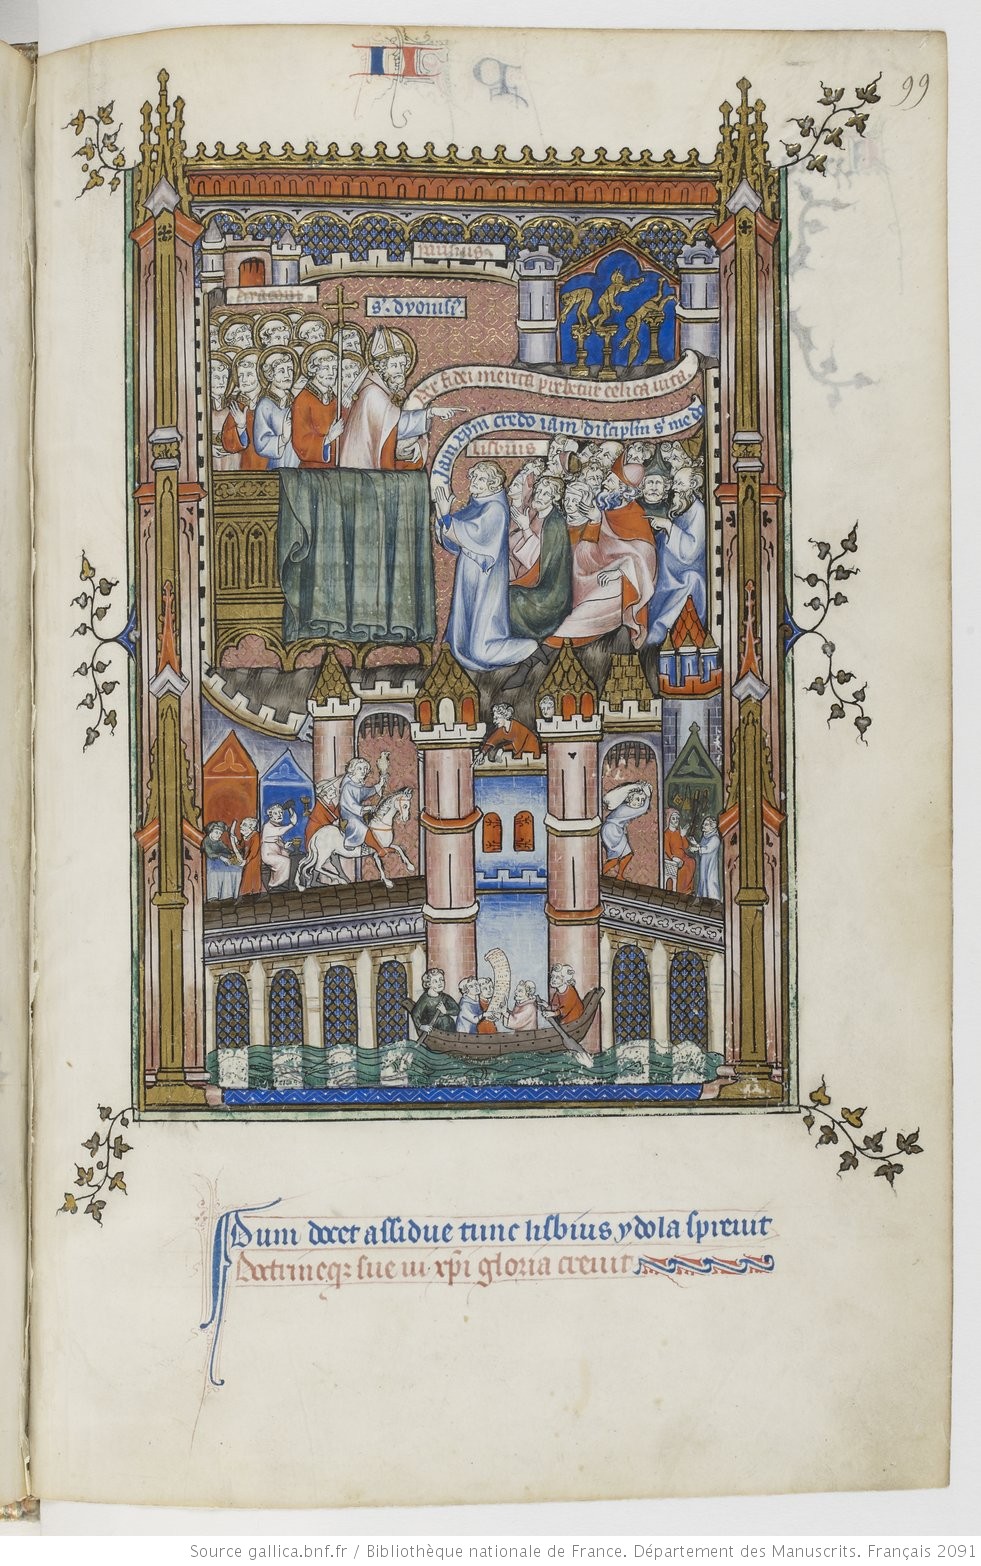 II
99
parisius
s. dyonisi
per fidei merita perhetur celica vita
iam xpm credo iam disciplin s me d
lisbius
Dum docet assidue tunc lisbius ydola sprevit
Doctrineqz sue vi xpi gloria crevit
Source gallica.bnf.fr / Bibliothèque nationale de France. Département des Manuscrits. Français 2091